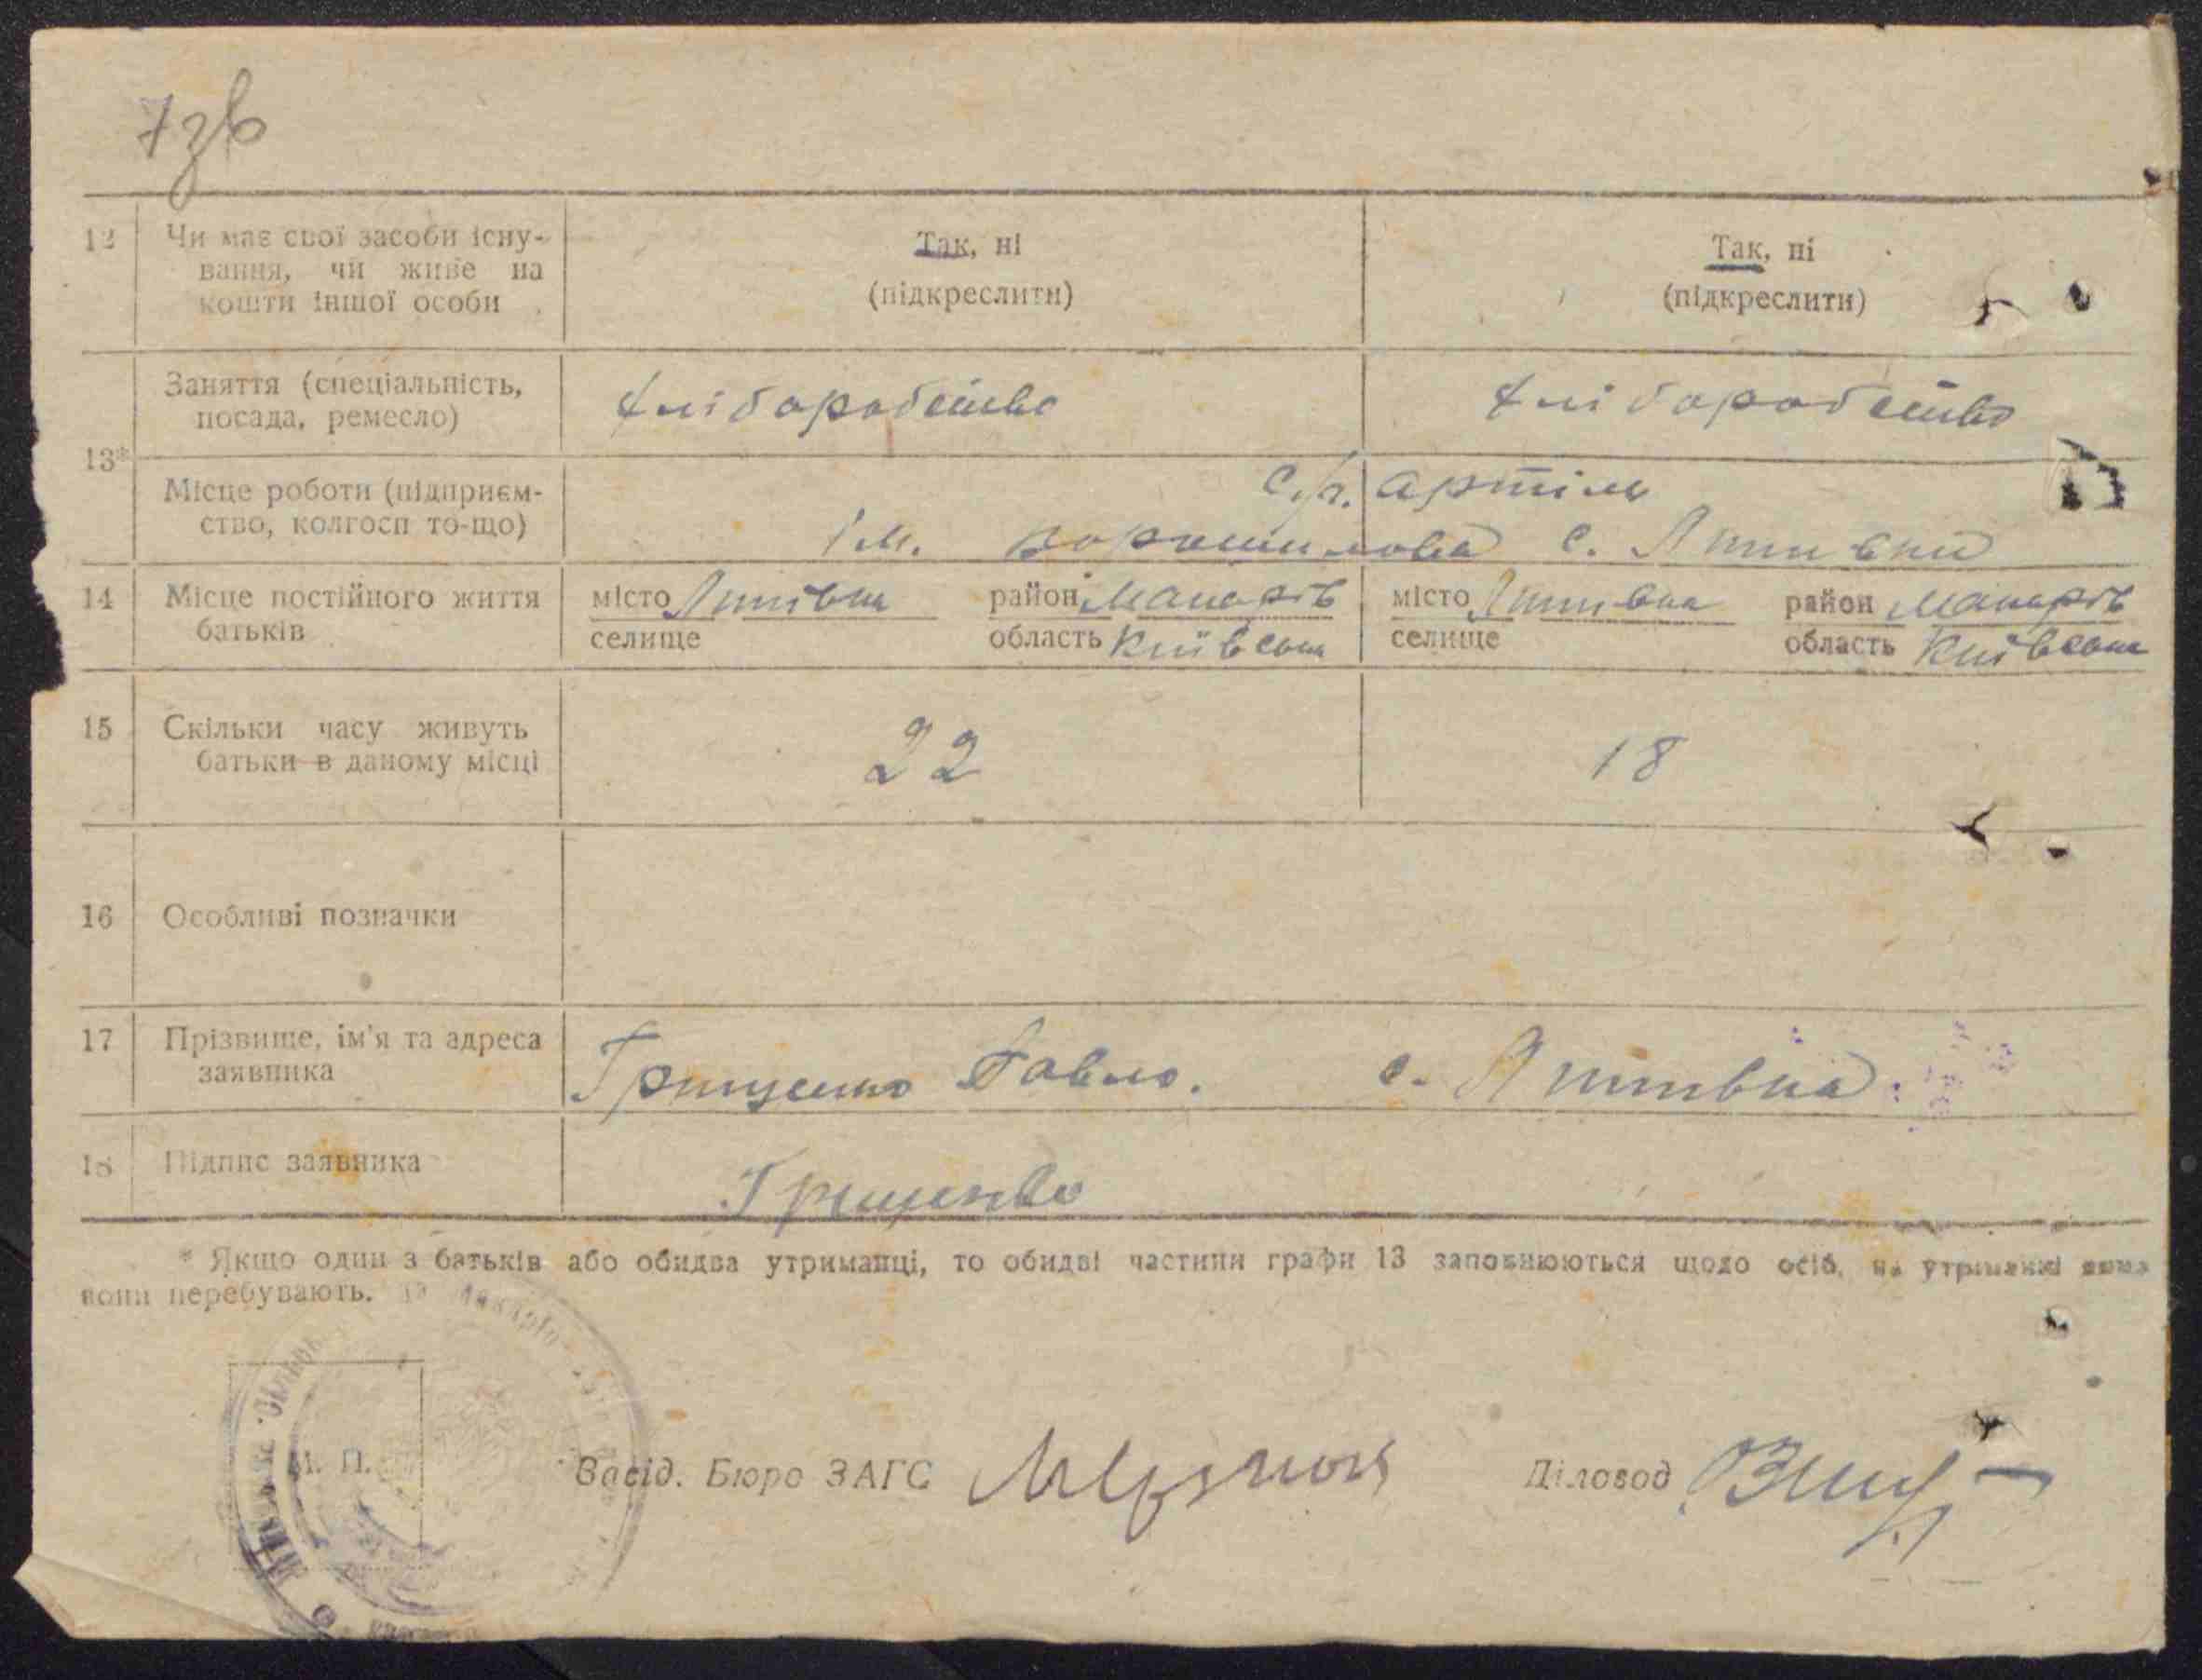 7зв
12 Чи має свої засоби існу- Так, ні Так, ні
вання, чи живе на (підкреслити) (підкреслити)
кошти іншої особи
13* Заняття (спеціальність, хліборобство хліборобство
посада, ремесло)
Місце роботи (підприєм- с/г. артіль
ство, колгосп то-що) ім. Ворошилова с. Липівки
14 Місце постійного життя місто Липівка район Макарів місто Липівка район Макарів
батьків селище область Київська селище область Київська
15 Скільки часу живуть 22 18
батьки в даному місці
16 Особливі позначки
17 Прізвище, ім'я та адреса Грищенко Павло. с. Липівка
заявника
18 Підпис заявника Грищенко
* Якщо один з батьків або обидва утриманці, то обидві частини графи 13 заповнюються щодо осіб, на утриманні яких
вони перебувають.
М. П. Завід. Бюро ЗАГС Діловод